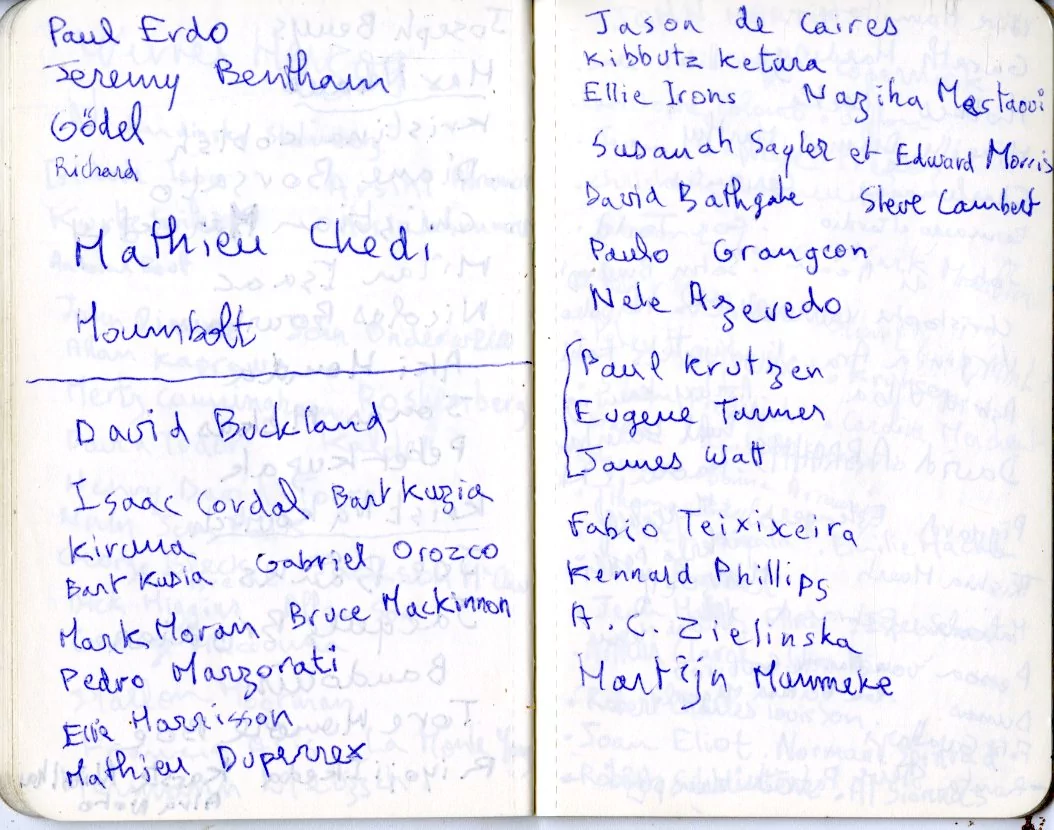 Paul Erdo
Jeremy Bentham
Gödel
Richard
Mathieu Chedi
Houmbolt
David Buckland
Isaac Cordal Bart Kuzia
Kirana
Gabriel Orozco
Bart Kusia
Mark Moran Bruce Mackinnon
Pedro Marzorati
Ellie Harrisson
Mathieu Duperrex
Jason de Caires
Kibbutz Ketura
Ellie Irons Naziha Mestaoui
Susanah Sayler et Edward Morris
David Bathgate Steve Lambert
Paulo Grangeon
Nele Azevedo
Paul Krutzen
Eugene Turmer
James Watt
Fabio Teixixeira
Kennard Phillips
A.C. Zielinska
Martijn